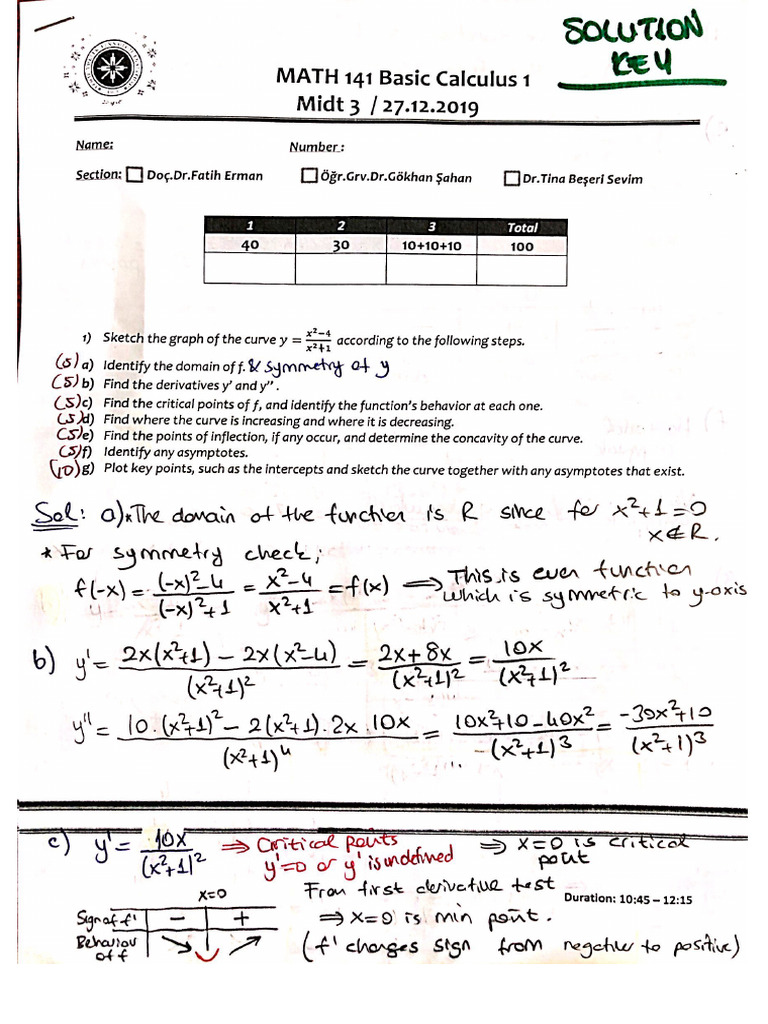 SOLUTION
KEY
MATH 141 Basic Calculus 1
Midt 3 / 27.12.2019
Name: Number :
Section: Doç.Dr.Fatih Erman Öğr.Grv.Dr.Gökhan Şahan Dr.Tina Beşeri Sevim
1 2 3 Total
40 30 10+10+10 100
1) Sketch the graph of the curve y = (x²−4)/(x²+1) according to the following steps.
(5) a) Identify the domain of f. & symmetry of y
(5) b) Find the derivatives y' and y'' .
(5) c) Find the critical points of f, and identify the function's behavior at each one.
(5) d) Find where the curve is increasing and where it is decreasing.
(5) e) Find the points of inflection, if any occur, and determine the concavity of the curve.
(5) f) Identify any asymptotes.
(10) g) Plot key points, such as the intercepts and sketch the curve together with any asymptotes that exist.
Sol: a)* The domain of the function is R since for x²+1=0
x∉R.
* For symmetry check;
f(-x) = ((-x)²-4)/((-x)²+1) = (x²-4)/(x²+1) = f(x) ⟹ This is even function
which is symmetric to y-axis
b) y' = (2x(x²+1) - 2x(x²-4))/(x²+1)² = (2x+8x)/(x²+1)² = 10x/(x²+1)²
y'' = (10.(x²+1)² - 2(x²+1).2x.10x)/(x²+1)⁴ = (10x²+10-40x²)/(x²+1)³ = (-30x²+10)/(x²+1)³
c) y' = 10x/(x²+1)² ⟹ Critical points ⟹ x=0 is critical
y'=0 or y' is undefined point
x=0 From first derivative test
Duration: 10:45 – 12:15
Sign of f' - + ⟹ x=0 is min point.
Behaviou of f (f' changes sign from negative to positive)